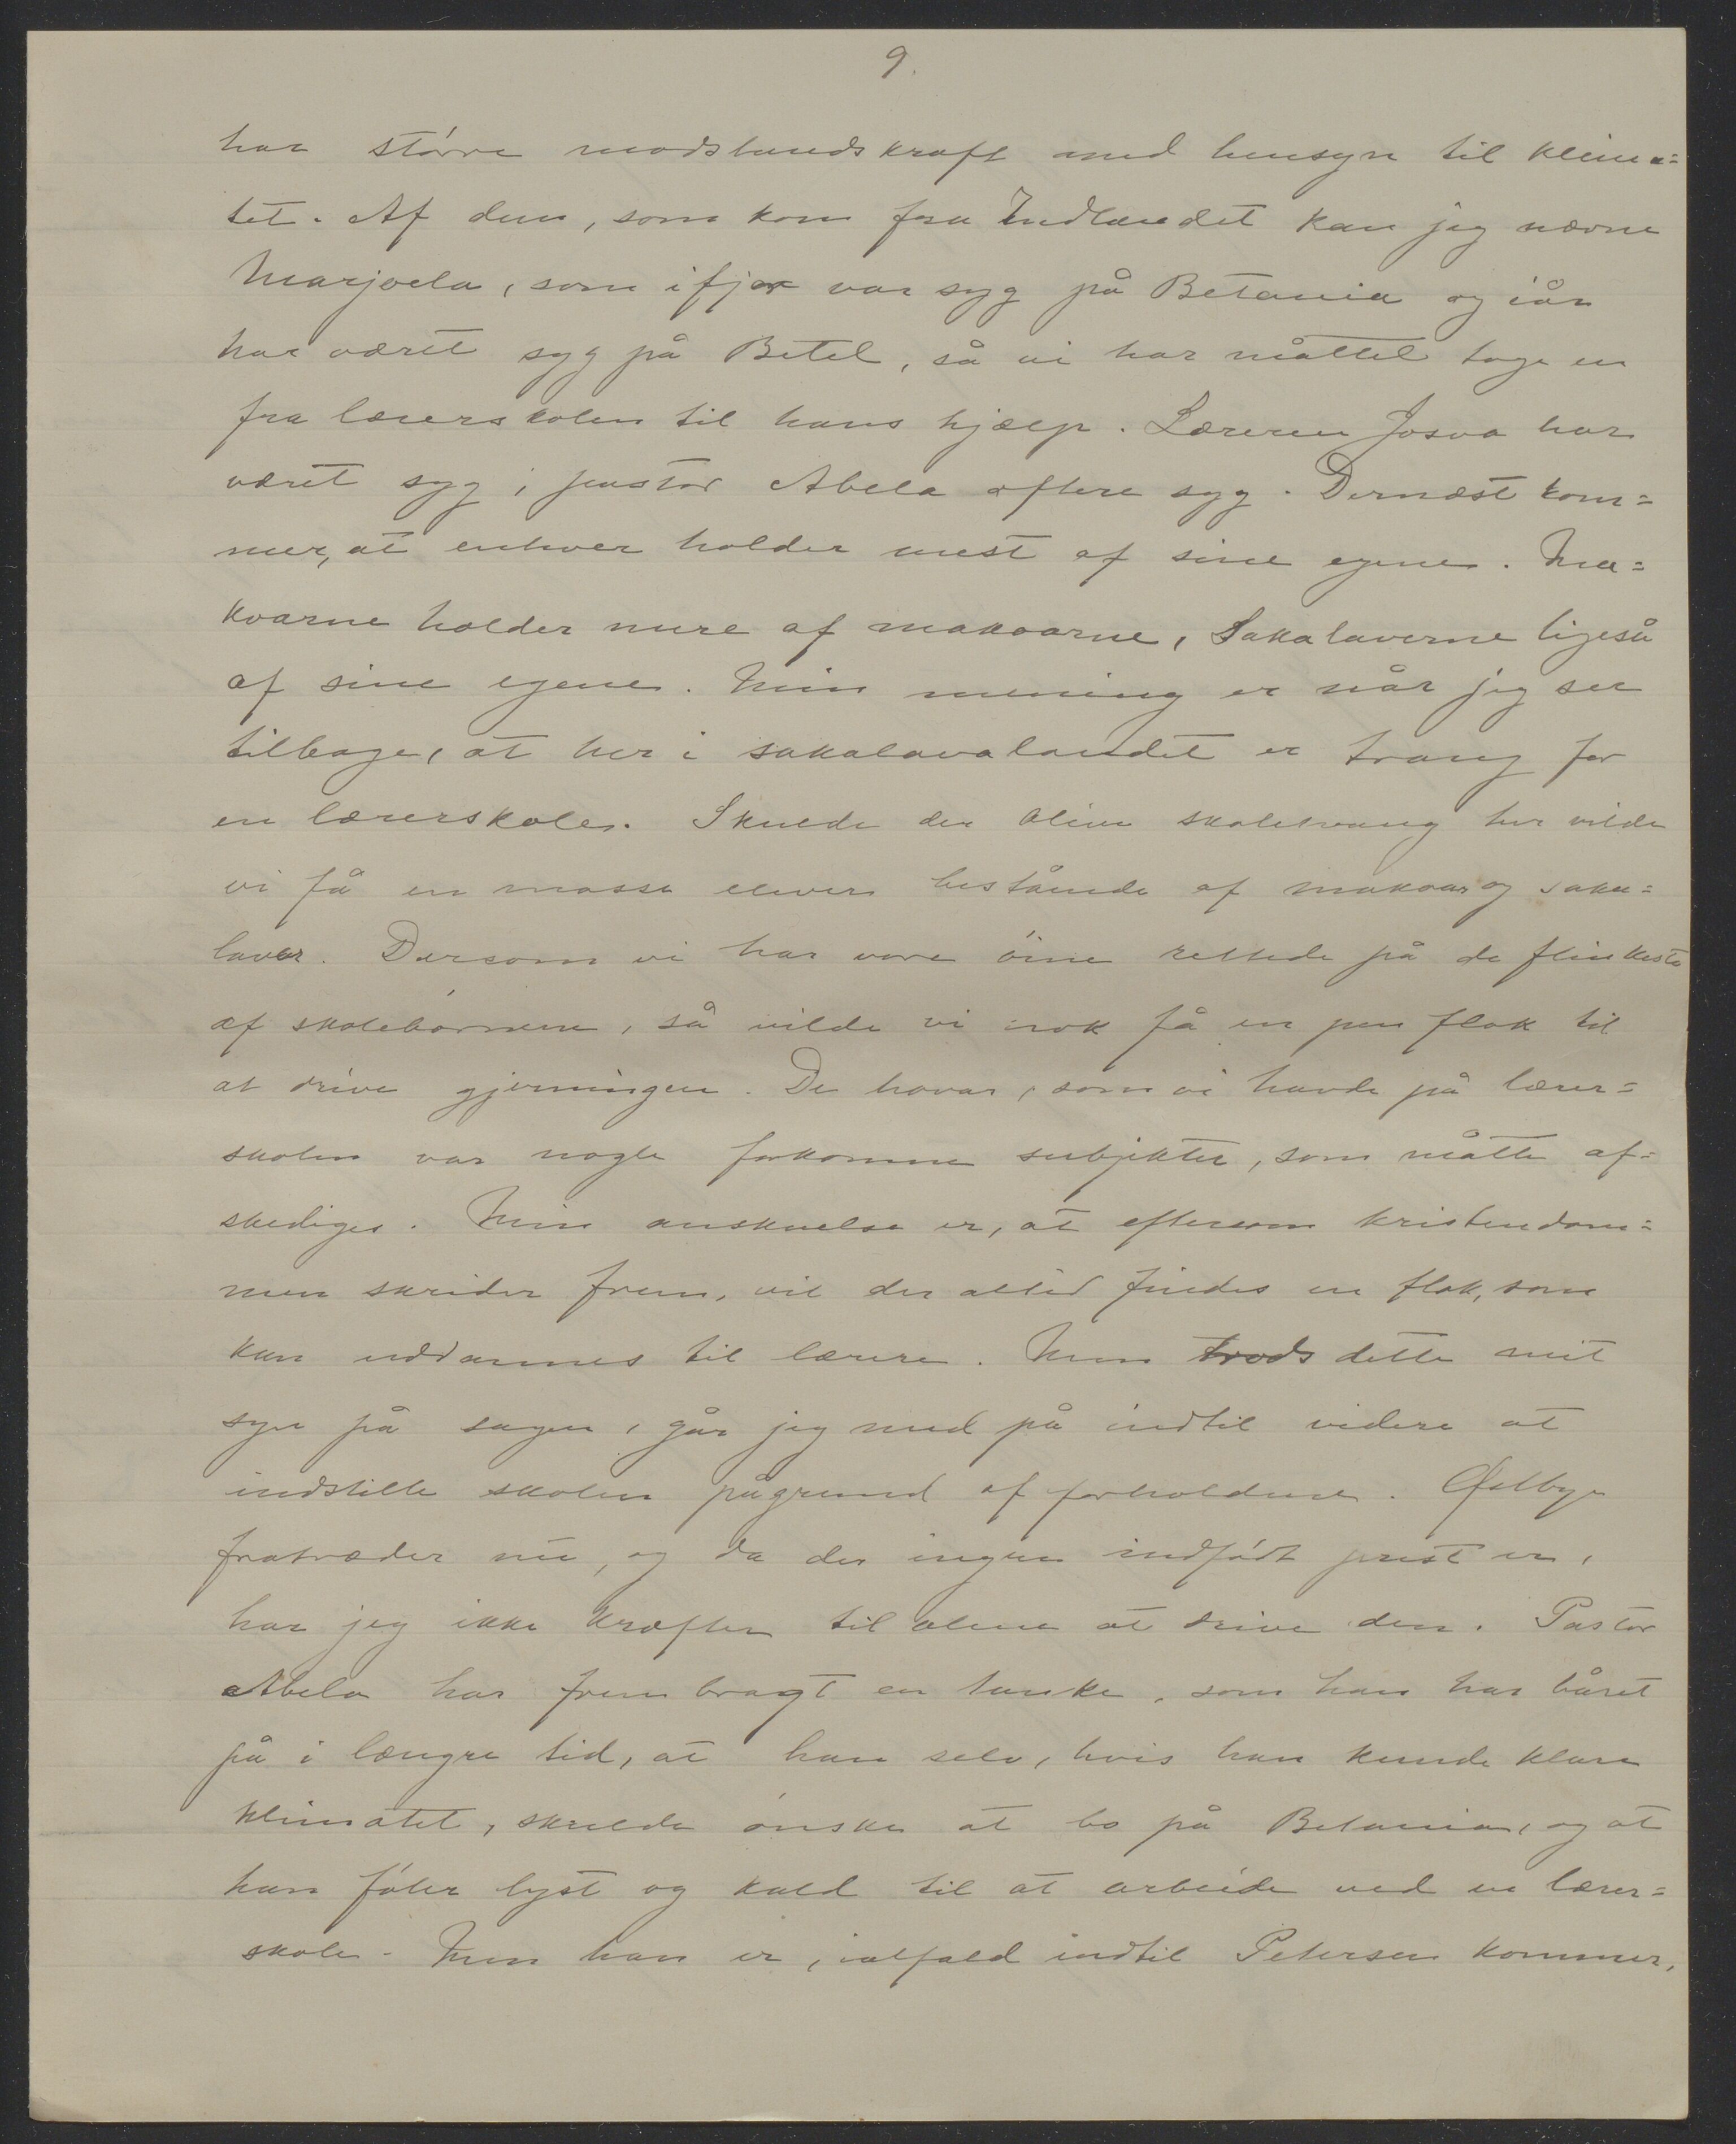 9.
har större modstandskraft med hensyn til klima=
tet. Af dem, som kom fra Indlandet kan jeg nævne
Marjoela, som ifjor var syg på Betania og iår
har været syg på Betel, så vi har måttet tage en
fra lærerskolen til hans hjælp. Læreren Josva har
været syg, pastor Abela oftere syg. Dernæst kom=
mer, at enhver holder mest af sine egne. Ma=
koarne holder mere af makoarne, Sakalaverne ligeså
af sine egene. Min mening er når jeg ser
tilbage, at her i sakalavalandet er trang for
en lærerskole. Skulde der blive skoletvang her vilde
vi få en masse elever bestående af makoar og saka=
laver. Dersom vi har vore öine rettede på de flinkeste
af skolebörnene, så vilde vi nok få en pen flok til
at drive gjerningen. De hovaer, som vi havde på lærer=
skolen var nogle forkomne subjekter, som måtte af=
skediges. Min anskuelse er, at eftersom kristendom=
men skrider frem, vil der altid findes en flok, som
kan uddannes til lærere. Men trods dette mit
syn på sagen, går jeg med på indtil videre at
indstille skolen pågrund af forholdene. Östby
fratræder nu, og da der ingen indfödt prest er,
har jeg ikke kræfter til alene at drive den. Pastor
Abela har frembragt en tanke, som han har båret
på i længre tid, at han selv, hvis han kunde klare
klimatet, skulde önske at bo på Betania, og at
han föler lyst og kald til at arbeide ved en lærer=
skole. Men han er, ialfald indtil Petersen kommer,